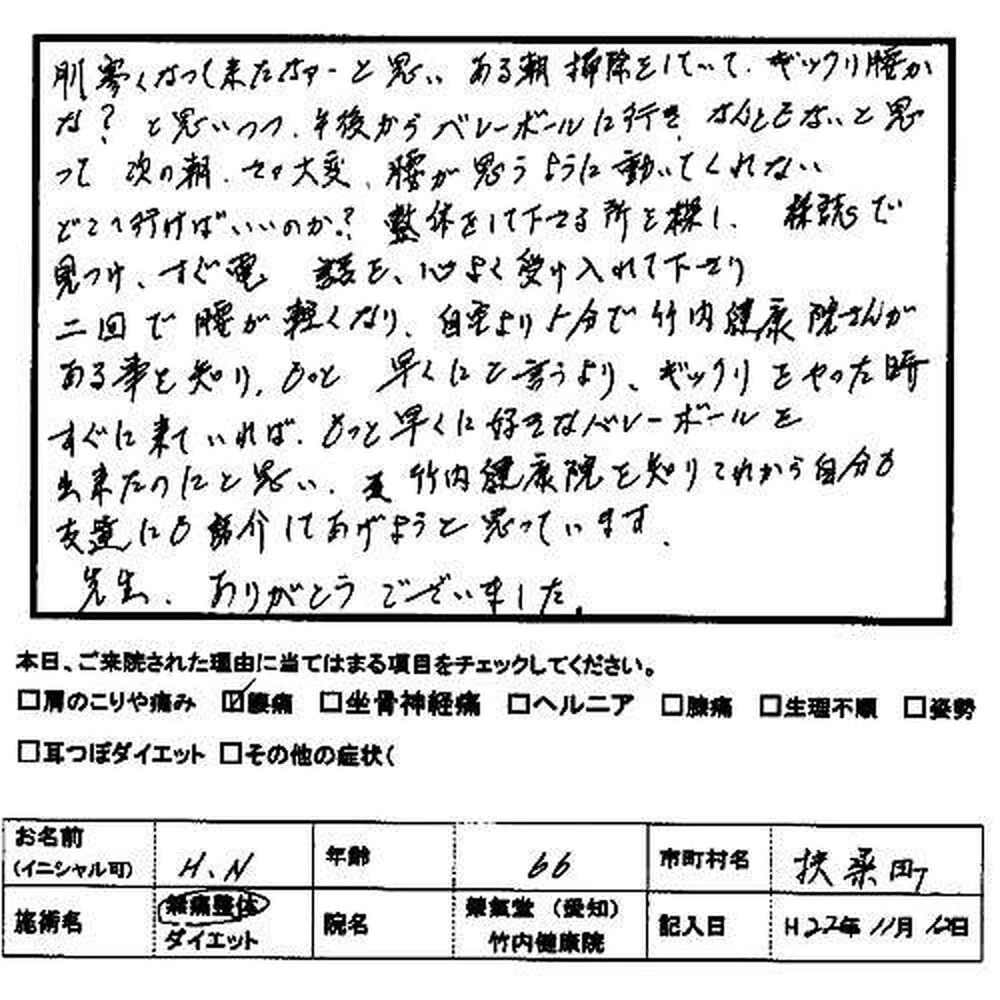 肌寒くなって来たなァーと思い ある朝掃除をしていて、ギックリ腰か
な？と思いつつ、午後からバレーボールに行き、なんともないと思
って 次の朝、サァ大変、腰が思うように動いてくれない
どこへ行けばいいのか？ 整体をして下さる所を探し、 雑誌で
見つけ、すぐ電 話を、心よく受け入れて下さり
二回で腰が軽くなり、自宅より5分で竹内健康院さんが
ある事を知り、もっと 早くにと言うより、ギックリをやった時
すぐに来ていれば、もっと早くに好きなバレーボールを
出来たのにと思い、 竹内健康院を知りこれから自分も
友達にも紹介してあげようと思っています。
先生、ありがとうございました。
本日、ご来院された理由に当てはまる項目をチェックしてください。
□肩のこりや痛み ☑腰痛 □坐骨神経痛 □ヘルニア □膝痛 □生理不順 □姿勢
□耳つぼダイエット □その他の症状(
お名前 (イニシャル可) H.N 年齢 66 市町村名 扶桑町
施術名 楽痛整体 ダイエット 院名 楽氣堂（愛知） 竹内健康院 記入日 H22年11月12日